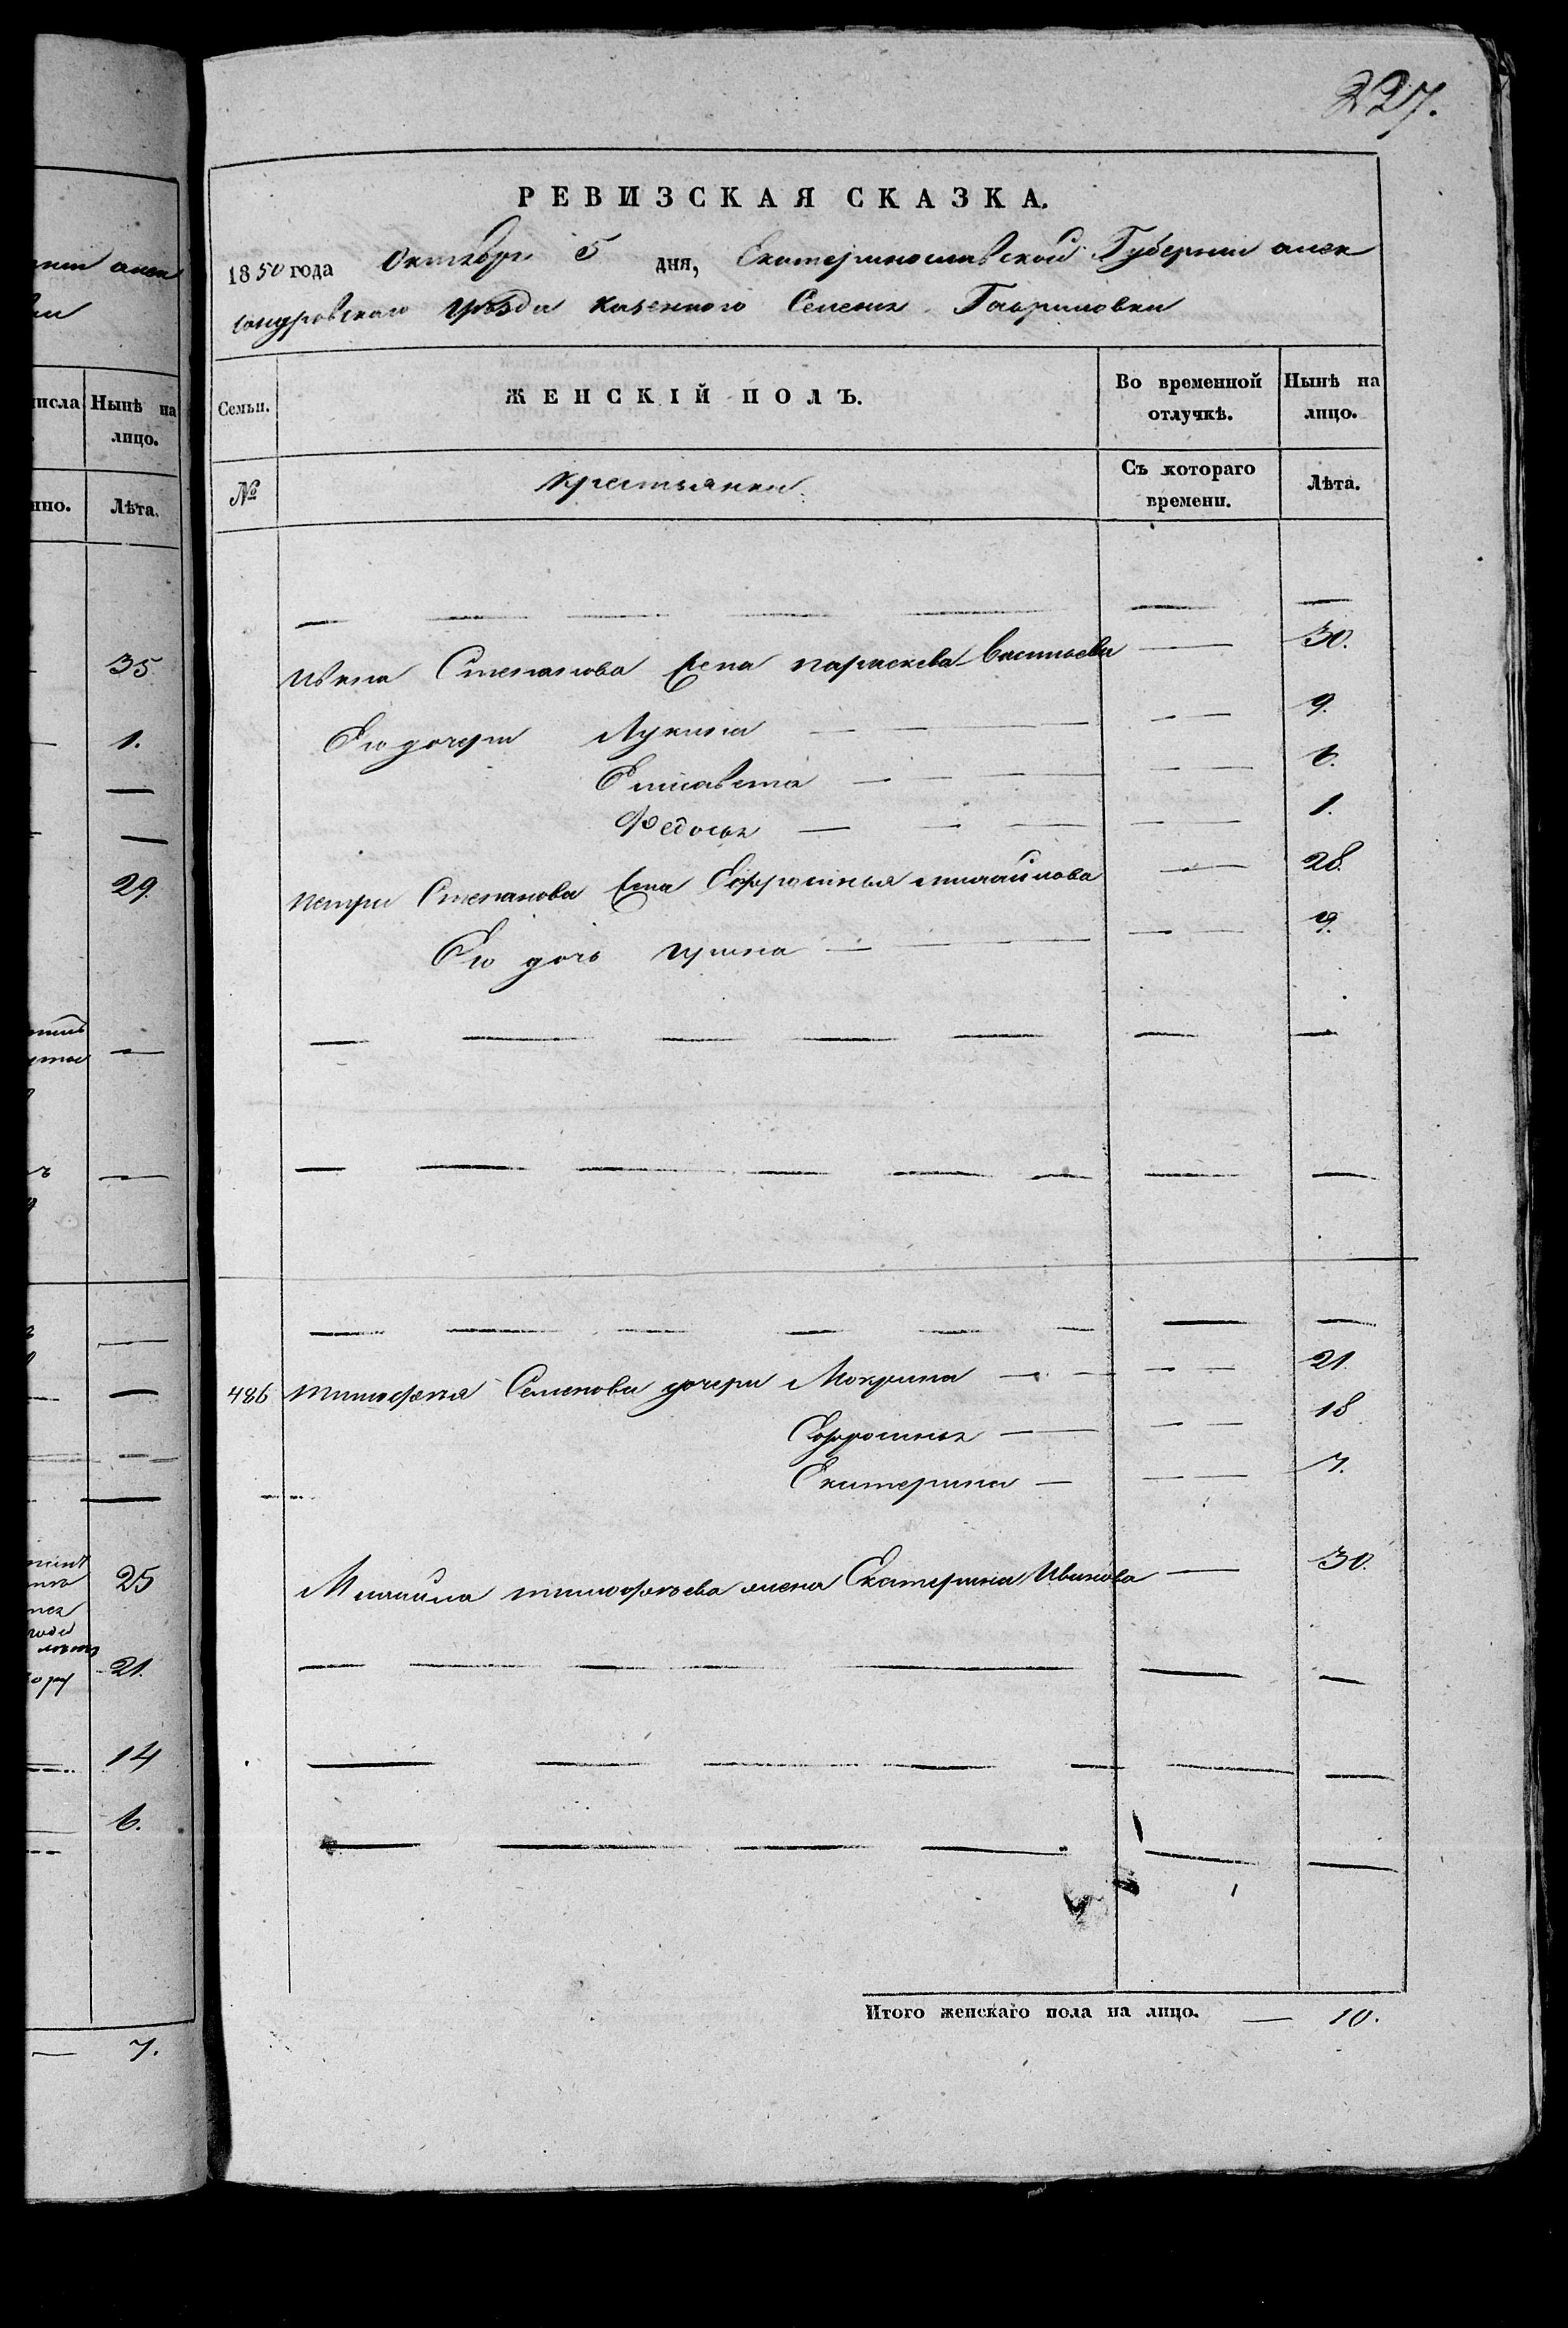 227.
РЕВИЗСКАЯ СКАЗКА.
1850 года Октября 5 дня, Екатеринославской Губернии алек
сандровскаго уѣзда казенного Селенія Гавриловки
Семьи. ЖЕНСКІЙ ПОЛЪ. Во временной отлучкѣ. Нынѣ на лицо.
№ крестьянки. Съ котораго времени. Лѣта.
Ивана Степанова жена параскева Васильева — 30.
Его дочери Лукия — 9.
Елисавета — 6.
Федосья — 1.
петра Степанова жена Ефросинья михайлова — 28.
Его дочь — 9.
486 тимофея Семенова дочери Мокрина — 21.
Ефросинья — 18
Екатерина — 7.
Михайла тимофеева жена Екатерина Иванова — 30.
Итого женскаго пола на лицо. — 10.
Нынѣ на
лицо.
Лѣта.
35
1.
29.
25
21.
14
6.
7.